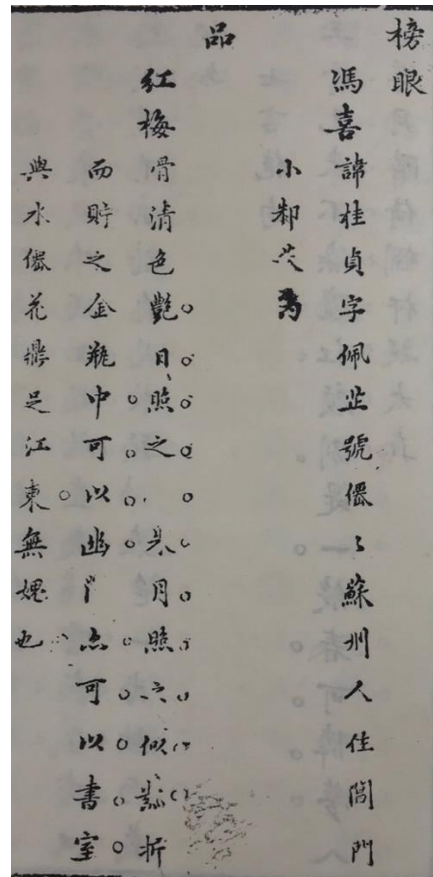 榜眼
馮喜諱桂貞字佩芷號僊〻蘇州人住閶門
小
品
紅梅骨清色艷日照之月照之似折
而貯之金瓶中可以幽亦可以書室
與水僊花鼎足江東無媿也